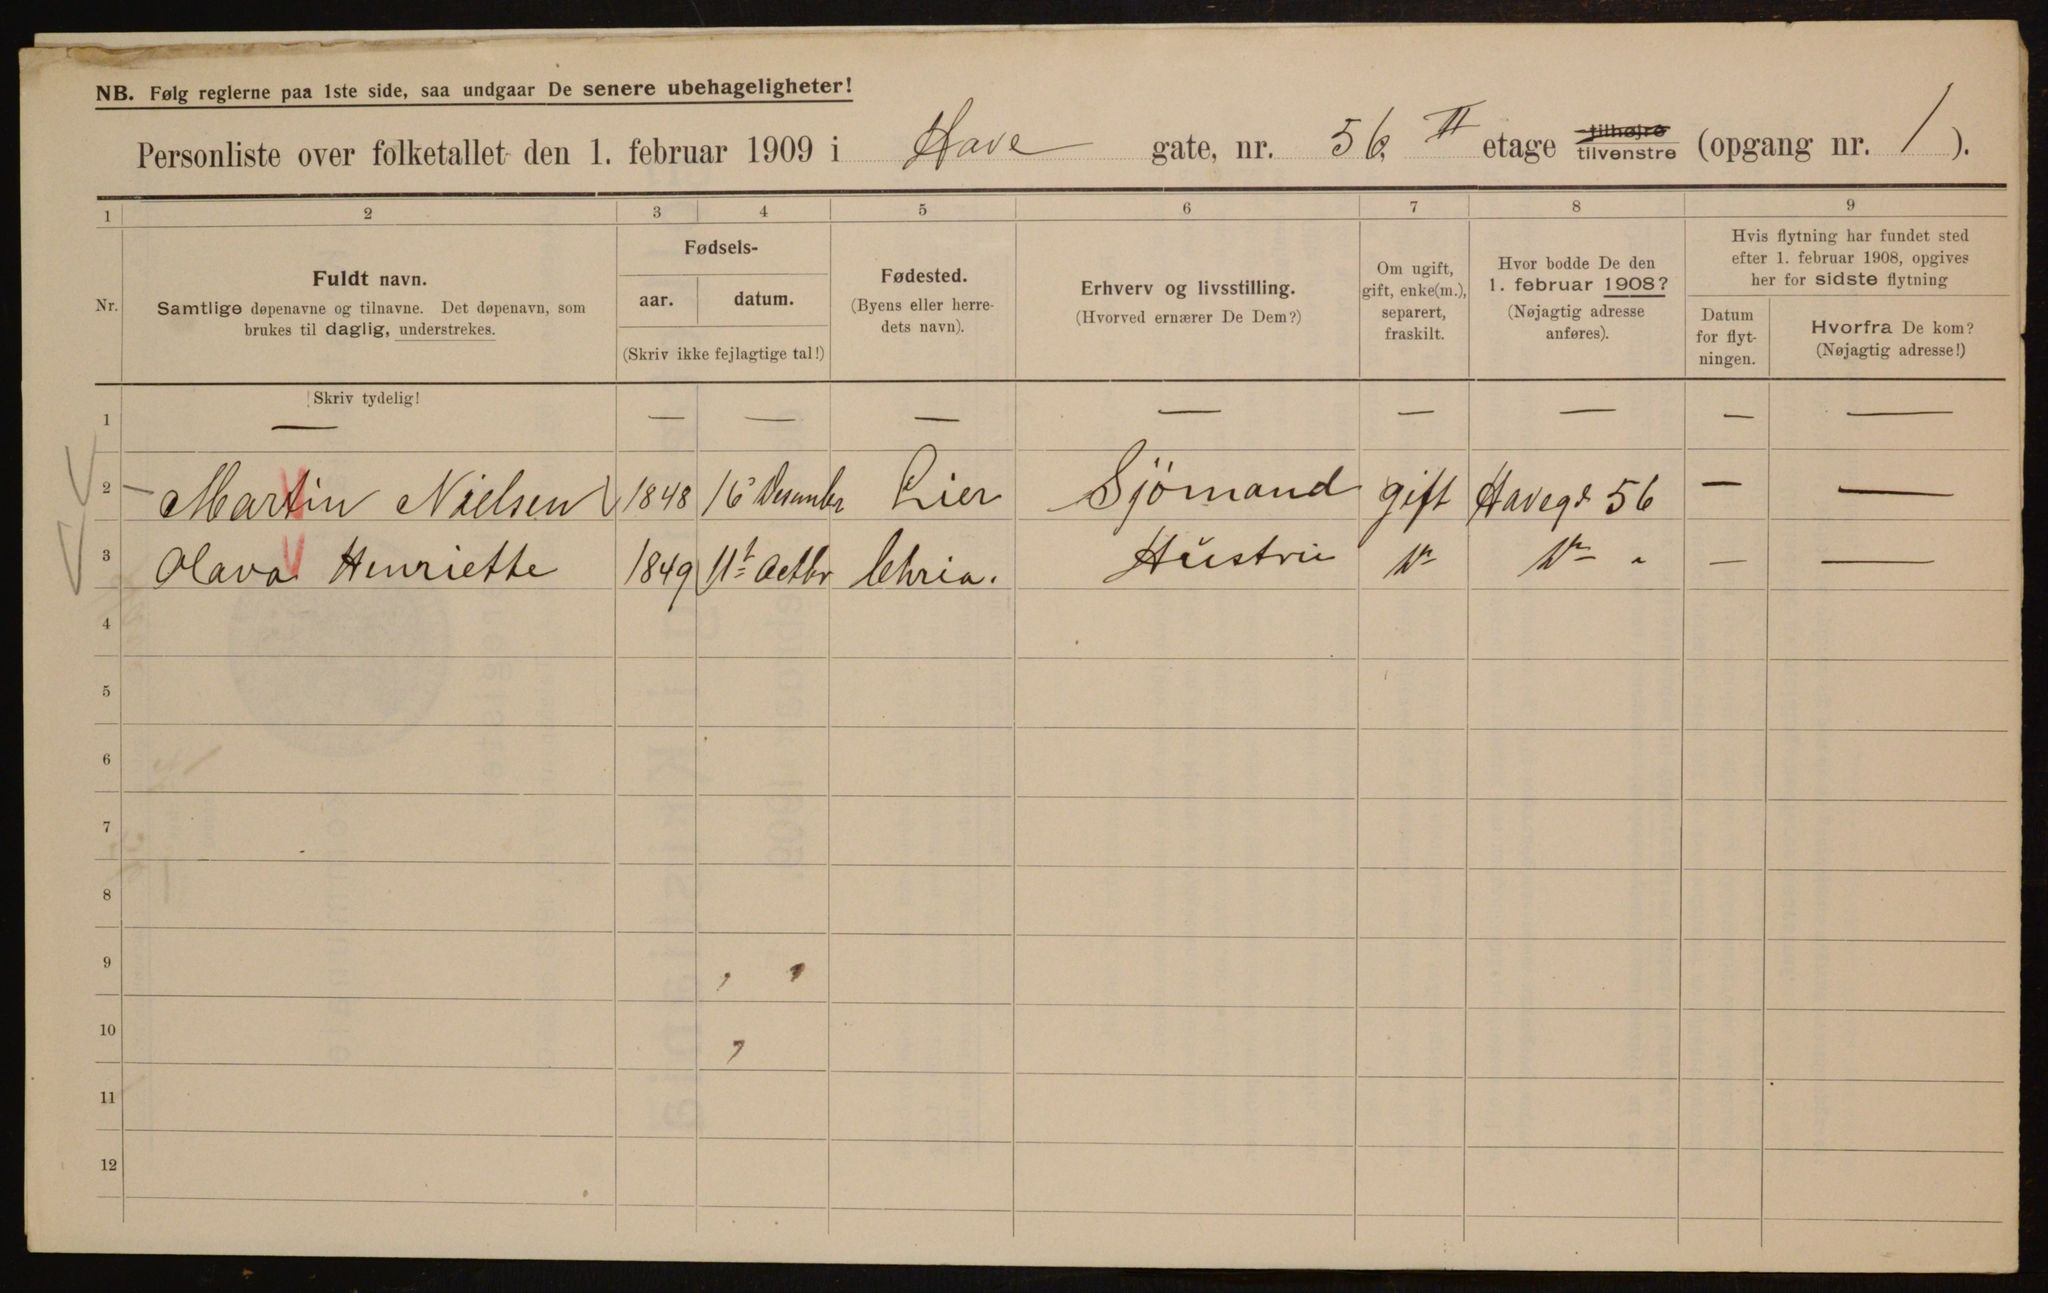 NB. Følg reglerne paa 1ste side, saa undgaar De senere ubehageligheter!
Personliste over folketallet den 1. februar 1909 i Have gate, nr. 56. II etage tilhøjre tilvenstre (opgang nr. 1).
1 2 3 4 5 6 7 8 9
Nr.
Fuldt navn.
Samtlige døpenavne og tilnavne. Det døpenavn, som
brukes til daglig, understrekes.
Fødsels-
aar. datum.
(Skriv ikke fejlagtige tal!)
Fødested.
(Byens eller herre-
dets navn).
Erhverv og livsstilling.
(Hvorved ernærer De Dem?)
Om ugift,
gift, enke(m.),
separert,
fraskilt.
Hvor bodde De den
1. februar 1908?
(Nøjagtig adresse
anføres).
Hvis flytning har fundet sted
efter 1. februar 1908, opgives
her for sidste flytning
Datum
for flyt-
ningen.
Hvorfra De kom?
(Nøjagtig adresse!)
Skriv tydelig!
1 — — — — — — — — —
2 – Martin Nielsen 1848 16 Desember Lier Sjömand gift Havegd 56 — —
3 Olava Henriette 1849 11t Octbr Chria. Hustru — —
4
5
6
7
8
9
10
11
12